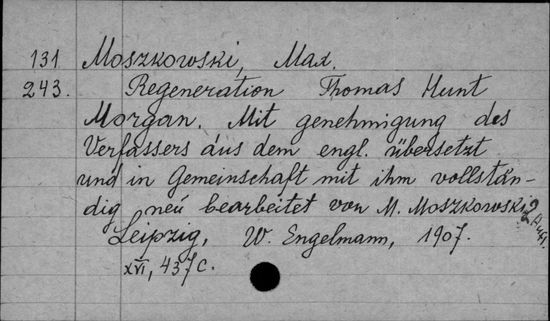 131 Moszkowski, Max.
243. Regeneration Thomas Hunt
Morgan. Mit genehmigung des
Verfassers aus dem engl. übersetzt
und in Gemeinschaft mit ihm vollstän-
dig neu bearbeitet von M. Moszkowski 2 Aufl.
Leipzig, W. Engelmann, 1907.
XVI, 437 c.